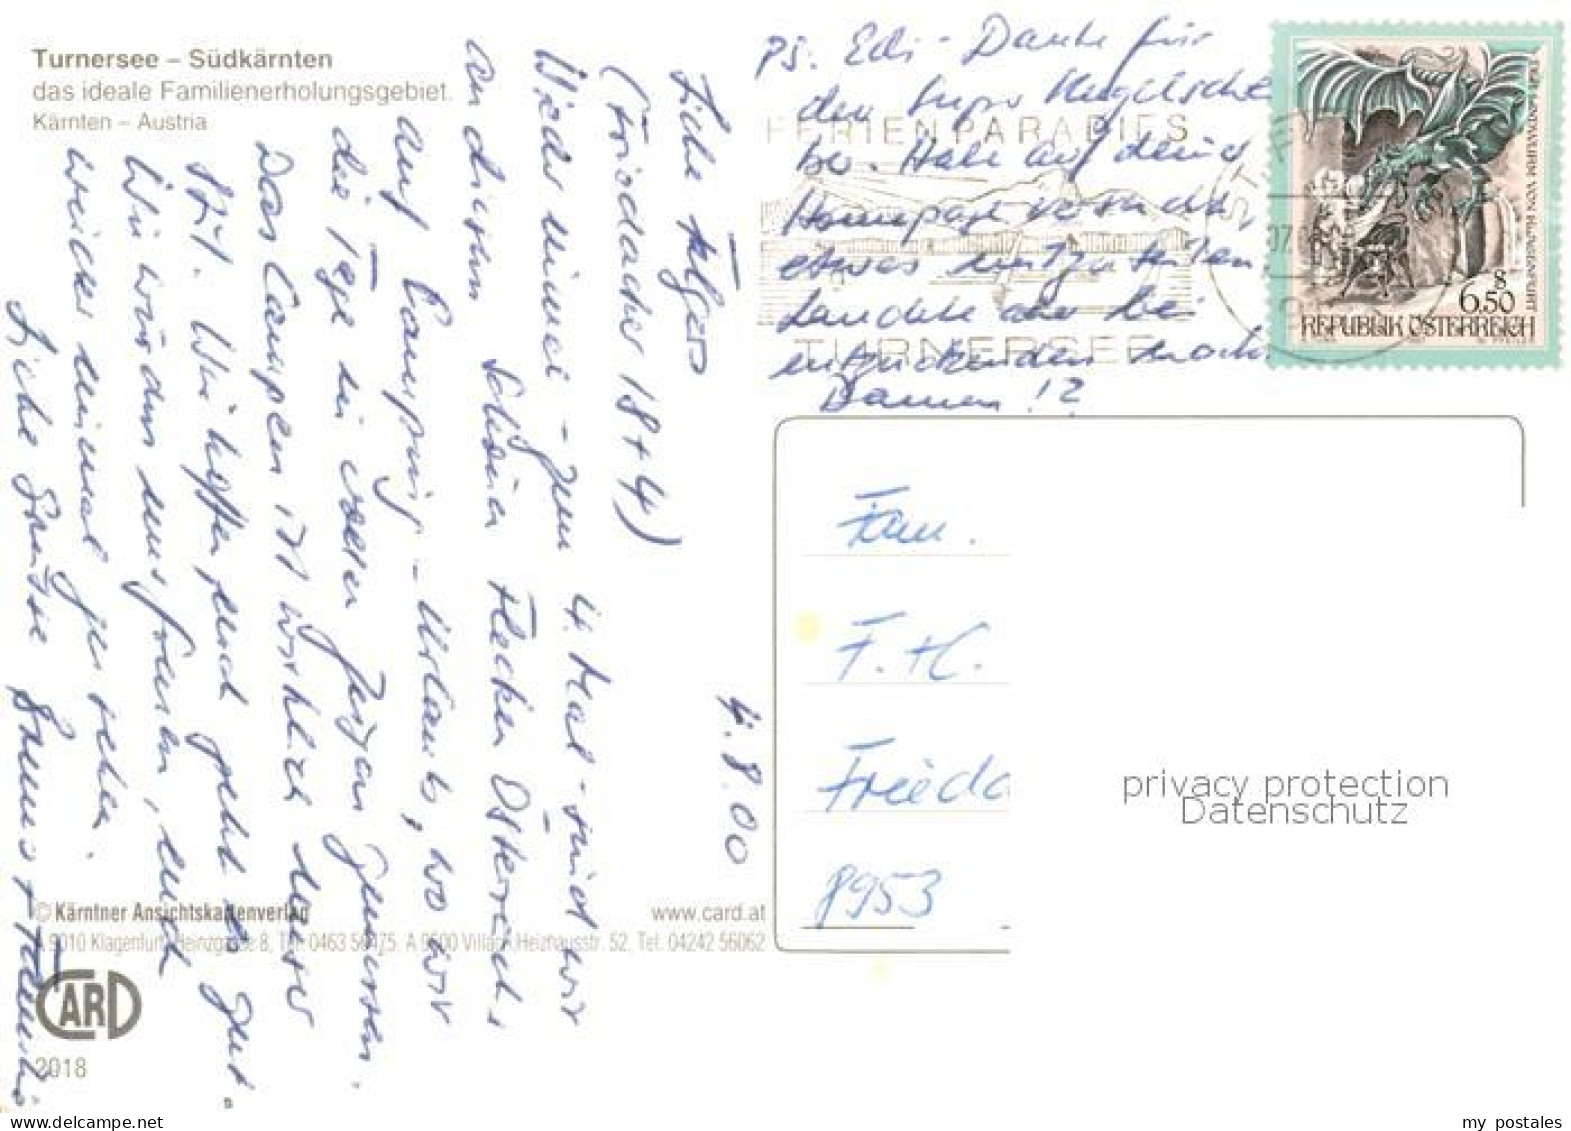 Turnersee – Südkärnten
das ideale Familienerholungsgebiet.
Kärnten – Austria
4.8.00
Liebe
(Friedacher 18+4)
Wieder einmal - zum 4. Mal - sind wir
an diesem schönen Flecken Österreichs
auf Camping-Urlaub, wo wir
die Tage in vollen Zügen genießen.
Das Campen ist wirklich unser
Stil. Wir hoffen euch geht es gut.
Wir würden uns freuen, euch
wieder einmal zu sehen.
Liebe Grüsse Hannes + Familie
PS. Edi - Danke für
den super
be. Habe auf deiner
Homepage versucht,
etwas
landete aber bei
entzückenden
Damen!?
FERIENPARADIES
TURNERSEE
1524 LINDWURM VON KLAGENFURT
8
6.50
REPUBLIK ÖSTERREICH
Fam.
F. H.
8953
privacy protection
Datenschutz
© Kärntner Ansichtskartenverlag
www.card.at
A 9010 Klagenfurt, Heinzgasse 8, Tel. 0463 56475. A 9500 Villach, Heizhausstr. 52, Tel. 04242 56062
CARD
2018
my postales